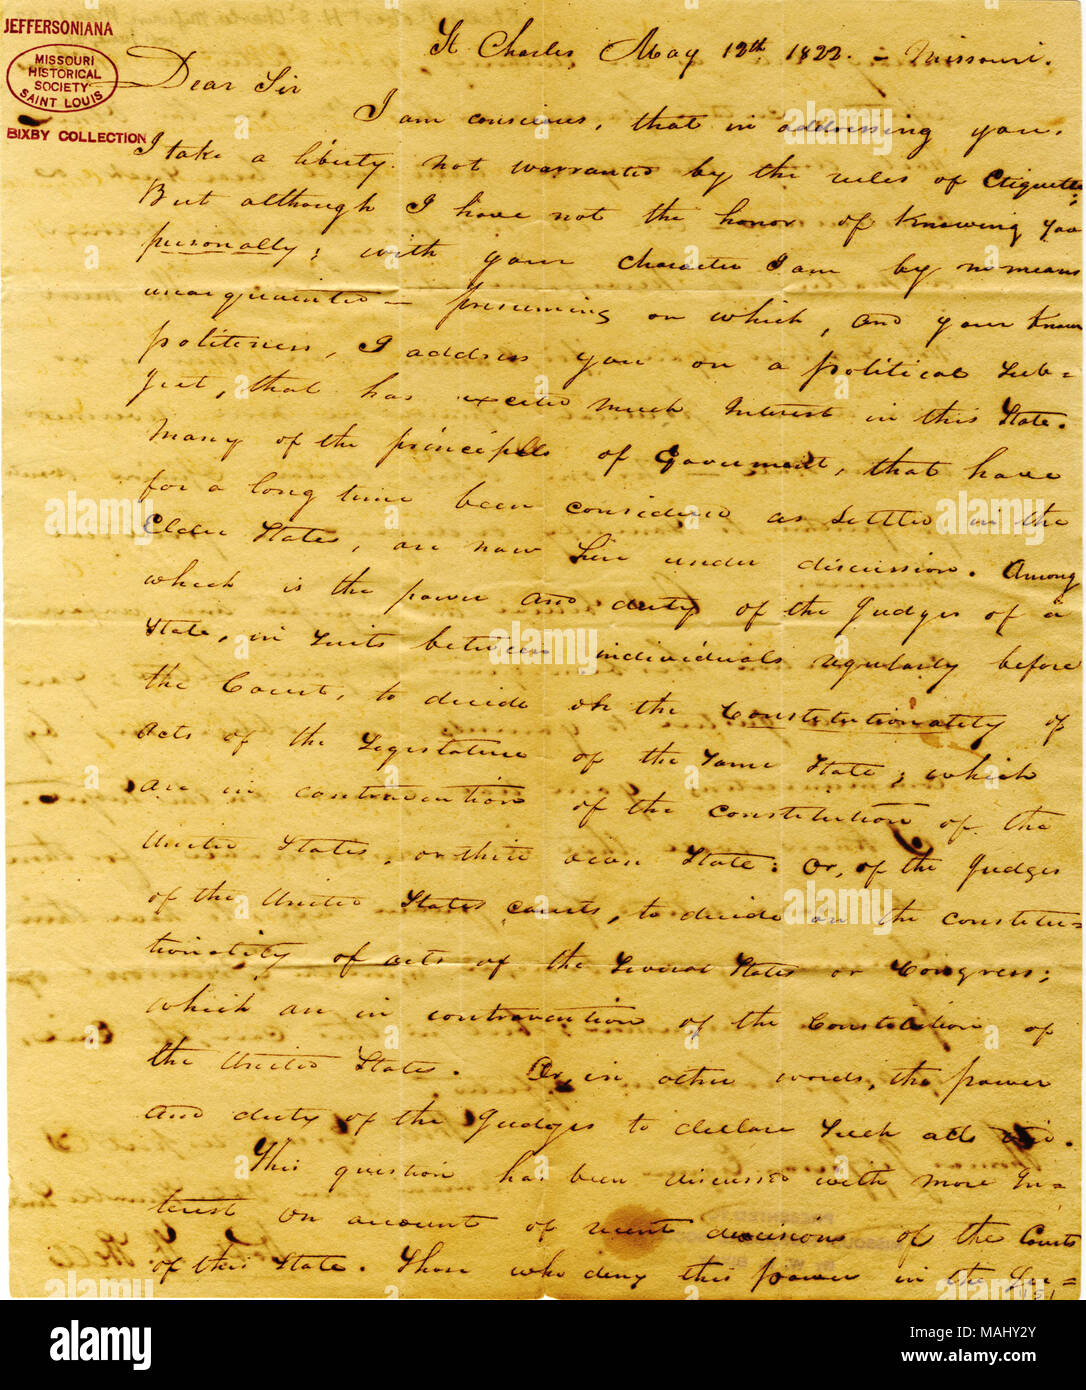 JEFFERSONIANA
MISSOURI
HISTORICAL
SOCIETY
SAINT LOUIS
BIXBY COLLECTION
St Charles, May 12th 1822. - Missouri.
Dear Sir
I am conscious, that in addressing you,
I take a liberty not warranted by the rules of Etiquette;
But although I have not the honor of knowing you
personally; with your character I am by no means
unacquainted - presuming on which, and your known
politeness, I address you on a political sub=
ject, that has excited much interest in this State.
Many of the principles of Government, that have
for a long time been considered as settled in the
Elder States, are now here under discussion. Among
which is the power and duty of the Judges of a
State, in suits between individuals regularly before
the Court, to decide on the Constitutionality of
Acts of the Legislature of the same State; which
are in contravention of the constitution of the
United States, or their own State: Or, of the Judges
of the United States courts, to decide on the constitu=
tionality of acts of the several States or Congress;
which are in contravention of the Constitution of
the United States. Or, in other words, the power
and duty of the Judges to declare such acts void.
This question has been discussed with more In=
terest on account of recent decisions of the Courts
of this State. Those who deny this power in the Ju=
alamy
Image ID: MAHY2Y
www.alamy.com